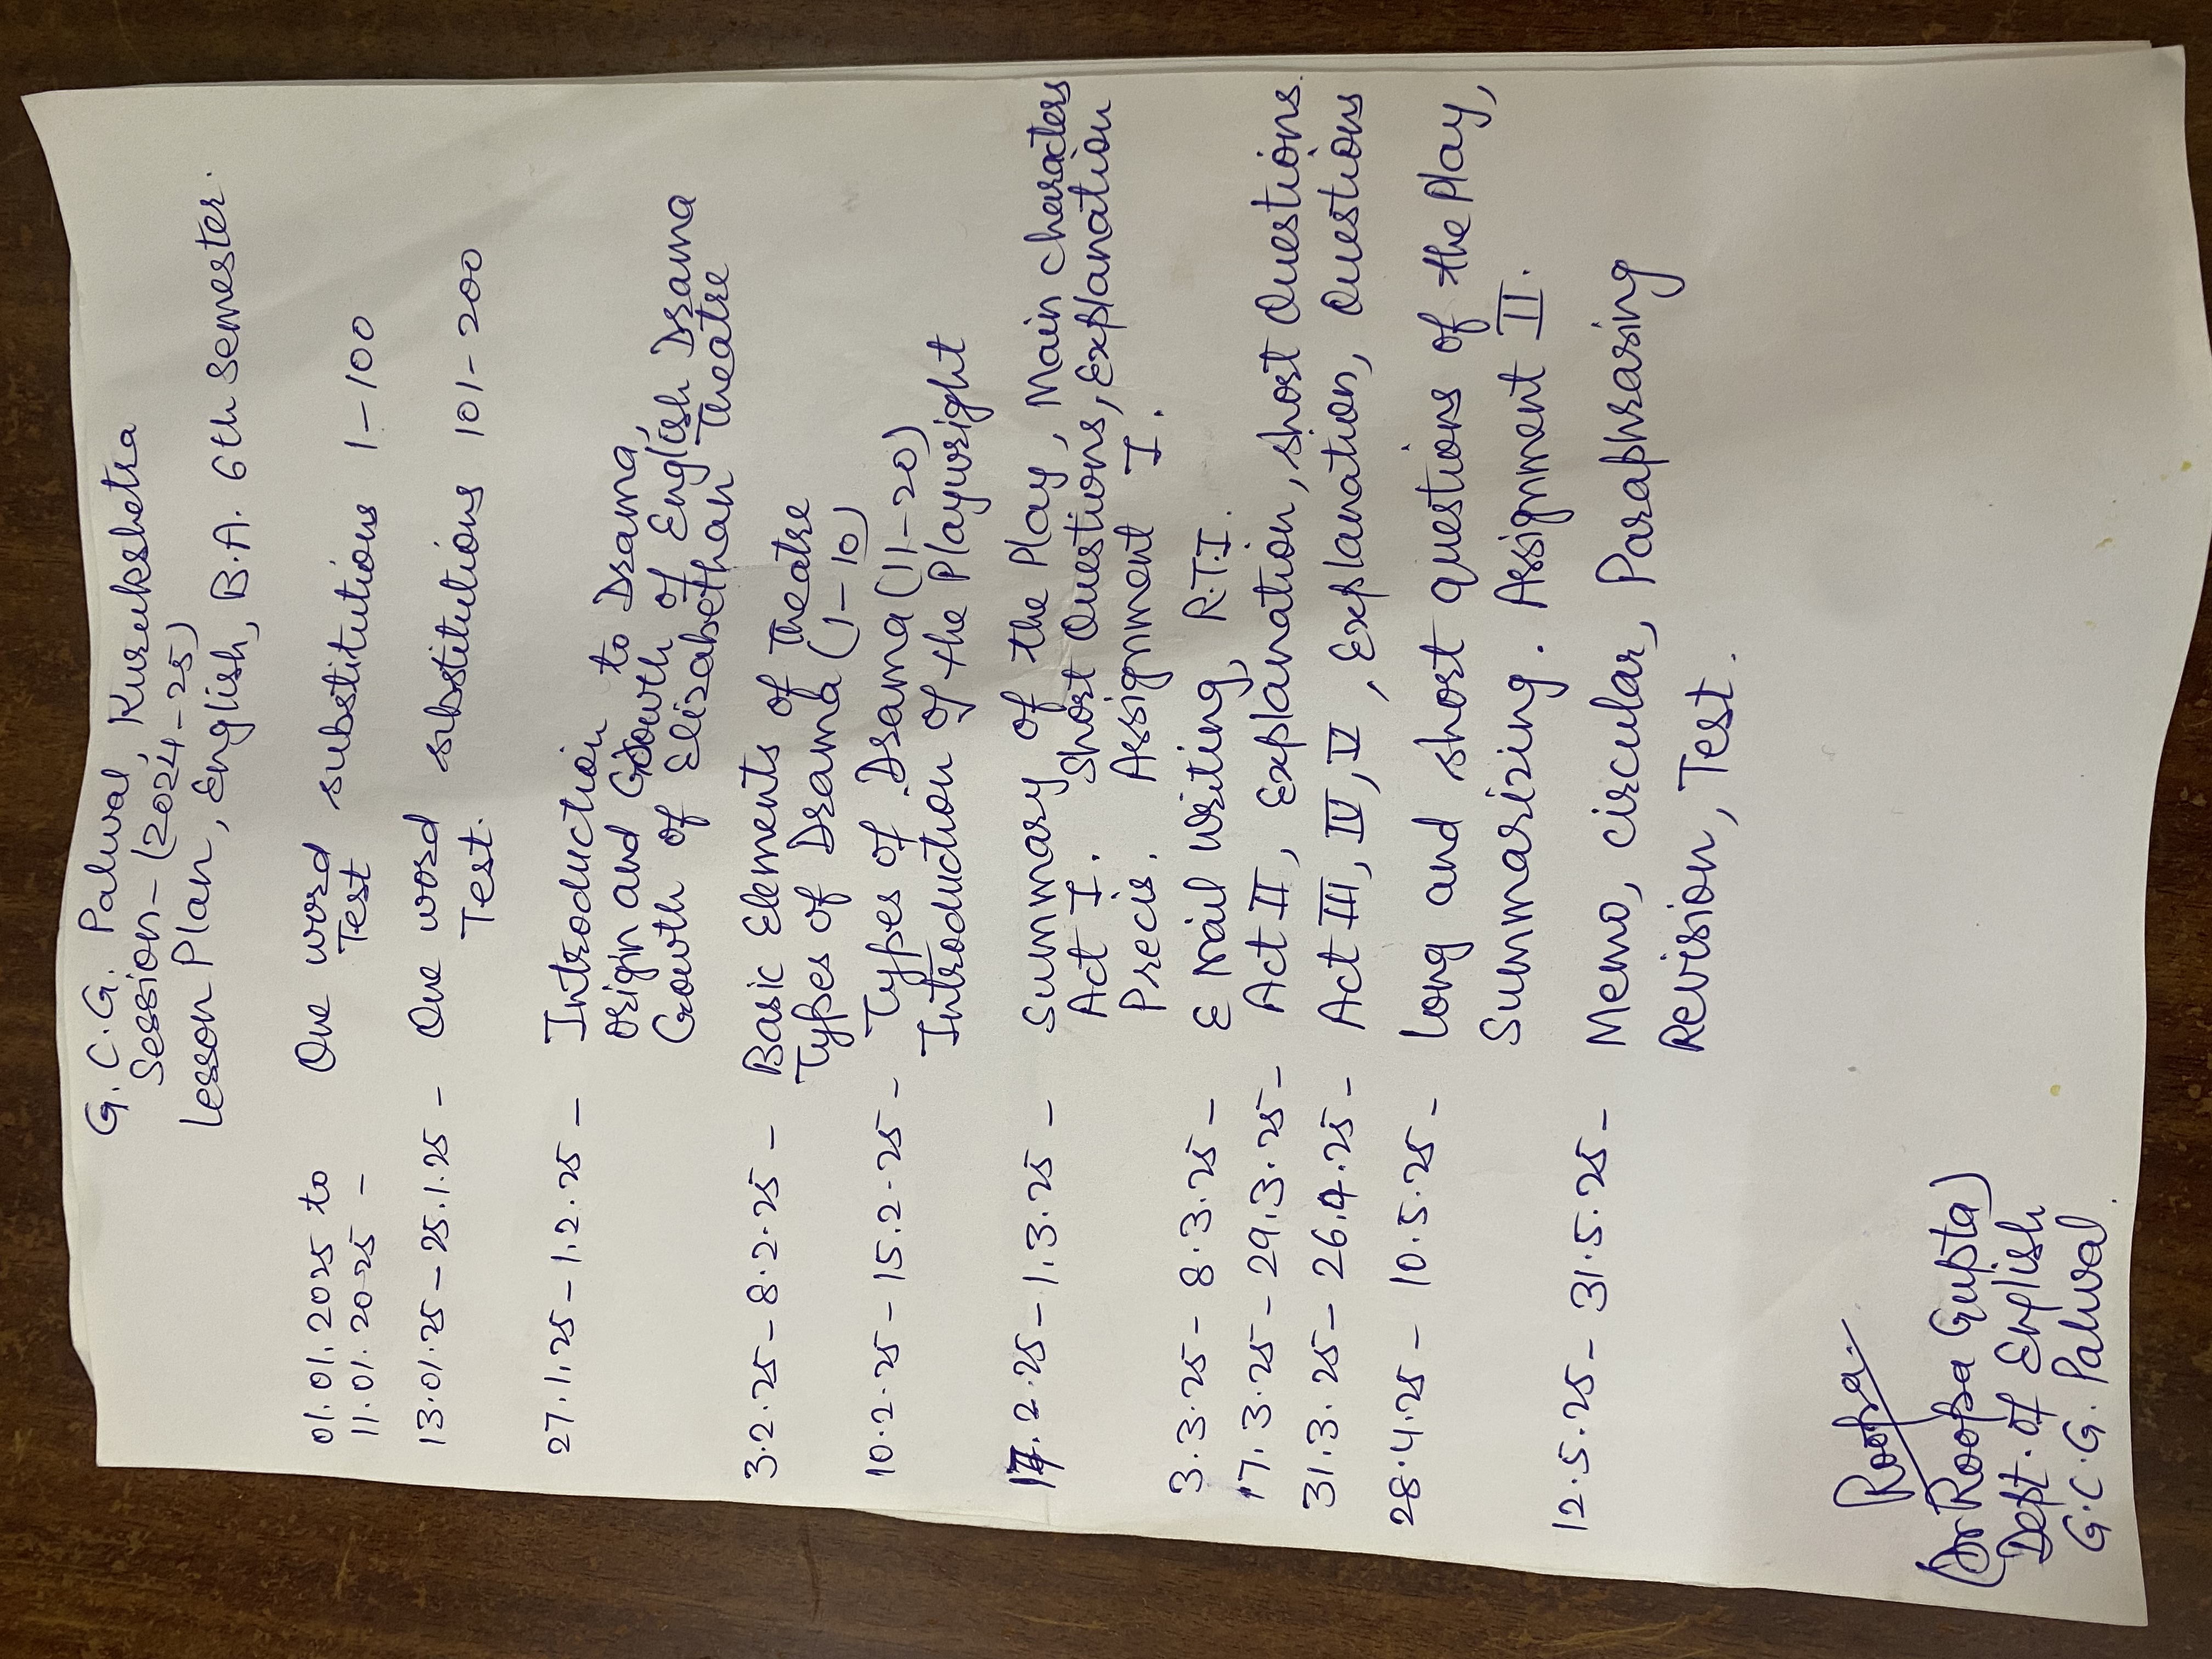 G.C.G. Palwal, Kurukshetra
Session-(2024-25)
Lesson Plan, English, B.A. 6th Semester.
01.01.2025 to One word substitutions 1-100
11.01.2025 - Test
13.01.25-25.1.25 - One word substitutions 101-200
Test.
27.1.25-1.2.25 - Introduction to Drama,
Origin and Growth of English Drama
Growth of Elizabethan Theatre
3.2.25-8.2.25 - Basic Elements of Theatre
Types of Drama (1-10)
10.2.25-15.2.25 - Types of Drama (11-20)
Introduction of the Playwright
17.2.25-1.3.25 - Summary of the Play, Main characters
Act I. Short Questions, Explanation
Precis. Assignment I.
3.3.25-8.3.25 - E Mail writing, R.T.I.
17.3.25-29.3.25 - Act II, Explanation, short Questions.
31.3.25-26.4.25 - Act III, IV, V, Explanation, Questions
28.4.25-10.5.25 - Long and short questions of the Play,
Summarizing. Assignment II.
12.5.25-31.5.25 - Memo, circular, Paraphrasing
Revision, Test.
Roopa
(Dr Roopa Gupta)
Dept. of English
G.C.G. Palwal.